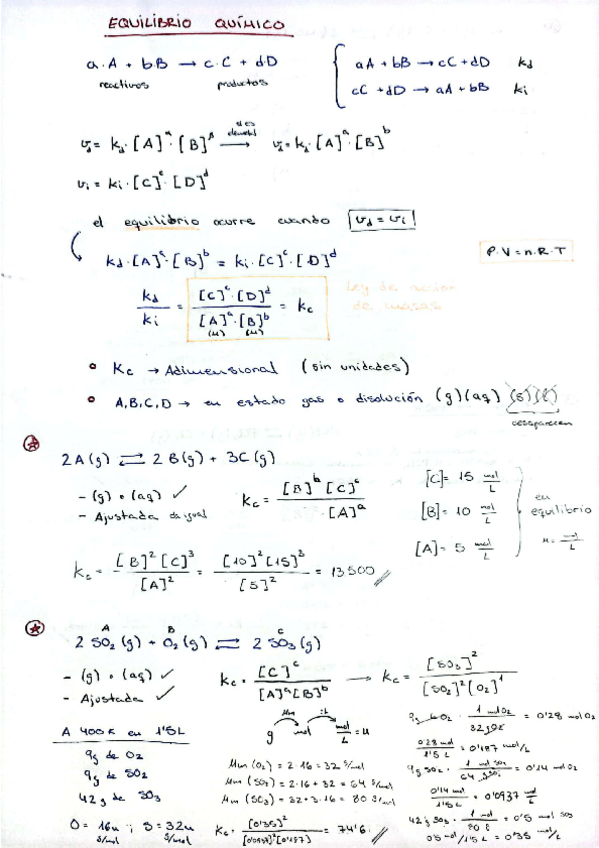 EQUILIBRIO QUÍMICO
a·A + b·B → c·C + d·D
reactivos productos
aA + bB → cC + dD kd
cC + dD → aA + bB ki
vd = kd·[A]^a·[B]^b → vd = kd·[A]^a·[B]^b
vi = ki·[C]^c·[D]^d
el equilibrio ocurre cuando vd = vi
kd·[A]^a·[B]^b = ki·[C]^c·[D]^d
P·V = n·R·T
kd/ki = [C]^c·[D]^d / [A]^a·[B]^b = kc
(M) (M)
Ley de acción
de masas
Kc → Adimensional (sin unidades)
A,B,C,D → en estado gas o disolución (g)(aq) (s)(l)
desaparecen
2A(g) ⇌ 2B(g) + 3C(g)
- (g) o (aq) ✓
- Ajustada da igual
Kc = [B]^b [C]^c / [A]^a
[C] = 15 mol/L
[B] = 10 mol/L
[A] = 5 mol/L
en
equilibrio
M = mol/L
Kc = [B]^2 [C]^3 / [A]^2 = [10]^2 [15]^3 / [5]^2 = 13500
A B C
2 SO2 (g) + O2 (g) ⇌ 2 SO3 (g)
- (g) o (aq) ✓
- Ajustada ✓
Kc = [C]^c / [A]^a [B]^b → Kc = [SO3]^2 / [SO2]^2 [O2]^1
A 400K en 1'5L
9g de O2
9g de SO2
42g de SO3
O = 16u ; S = 32u
g/mol g/mol
g mol mol/L = M
Mm :L
Mm (O2) = 2·16 = 32 g/mol
Mm (SO2) = 2·16 + 32 = 64 g/mol
Mm (SO3) = 32 + 3·16 = 80 g/mol
Kc = [0'35]^2 / [0'0937]^2 [0'187] = 74'6
9g O2 · 1 mol O2 / 32g O2 = 0'28 mol O2
0'28 mol / 1'5L = 0'187 mol/L
9g SO2 · 1 mol SO2 / 64 g SO2 = 0'14 mol O2
0'14 mol / 1'5L = 0'0937 mol/L
42g SO3 · 1 mol / 80 g = 0'5 mol SO3
0'5 mol/1'5L = 0'35 mol/L